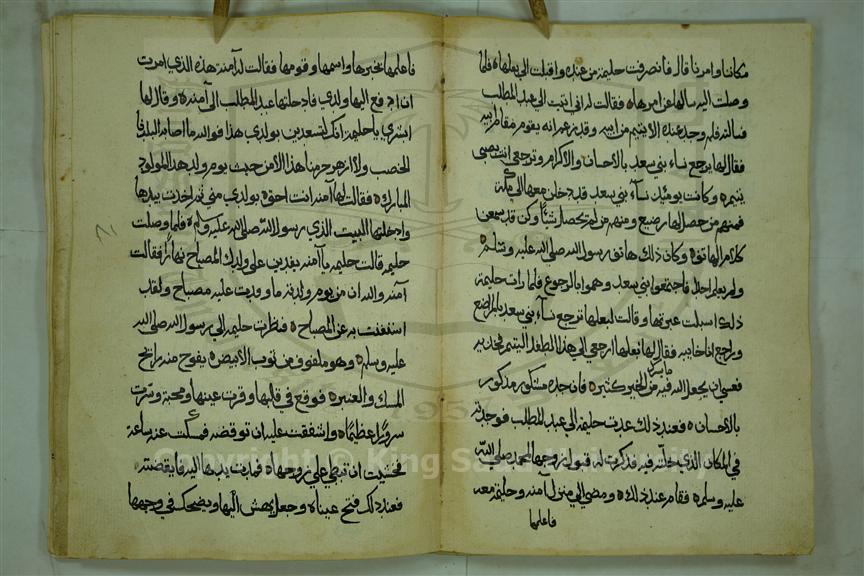 مكاننا وامرنا قال فانصرفت حليمة من عنده واقبلت الي بعلها فلما
وصلت اليه سالها عن امرها فقالت له اني اتيت الي عبد المطلب
فسالته فلم وجد عنده الا يتيم من ابيه وقد زعم انه يقوم مقام ابيه
فقال لها يرجع نساء بني سعد بالاحسان والاكرام وترجعي انت بصبي
يتيم وكانت يومئذ نساء بني سعد قد دخلن معها الي مكة
فمنهم من حصل لها رضيع ومنهم من لم يحصل شيئا وكن قد سمعن
كلام الهاتف وكان ذلك هاتف رسول الله صلي الله عليه وسلم
ولم يعلم احد فاجتمعوا بني سعد وهموا بالرجوع فلما رات حليمة
ذلك اسبلت عبرتها وقالت لبعلها ترجع نساء بني سعد بالمراضع
وراجع انا خايبه فقال لها بعلها ارجعي الي هذا الطفل اليتيم فخذيه
فعسي ان يجعل الله فيه من الخير كثيره فان جده مشكور مذكور
بالاحسان فعند ذلك عدت حليمة الي عبد المطلب فوجدته
في المكان الذي خلته فيه فذكرت له قول زوجها لمحمد صلي الله
عليه وسلم فقام عند ذلك ومضي الي منزل امنه وحليمة معه
فاعلمها
فاعلمها بخبرها واسمها وقومها فقالت له آمنة هذه الذي امرت
ان ادفع اليها ولدي فادخلتها عبد المطلب الي آمنه وقال لها
ابشري يا حليمة انك لتسعدين بولدي هذا فوالله ما اصاب البلد
الخصب ولا ازهر حرمنا هذا الا من حيث يوم ولد هذا المولود
المبارك فقالت لها آمنه انت احق بولدي مني ثم اخذت بيدها
وادخلتها البيت الذي رسول الله صلي الله عليه وسلم فلما وصلت
حليمه قالت حليمه يا آمنه بقدين علي ولدك المصباح نهارا فقالت
آمنه والله ان من يوم ولدته ما وقدت عليه مصباح ولقد
استغنت به عن المصباح فنظرت حليمه الي رسول الله صلي الله
عليه وسلم وهو ملفوف من ثوب الابيض يفوح منه رايح
المسك والعنبر فوقع في قلبها وقرت عينها ومحبة وسرت
سرورا عظيما واشفقت عليه ان توقضه فمسكت عنه ساعة
فخشيت ان تبطي علي زوجها فمدت يدها اليه فايقضته
فعند ذلك فتح عيناه وجعل يهش اليها ويضحك في وجهها
Copyright © King Saud University